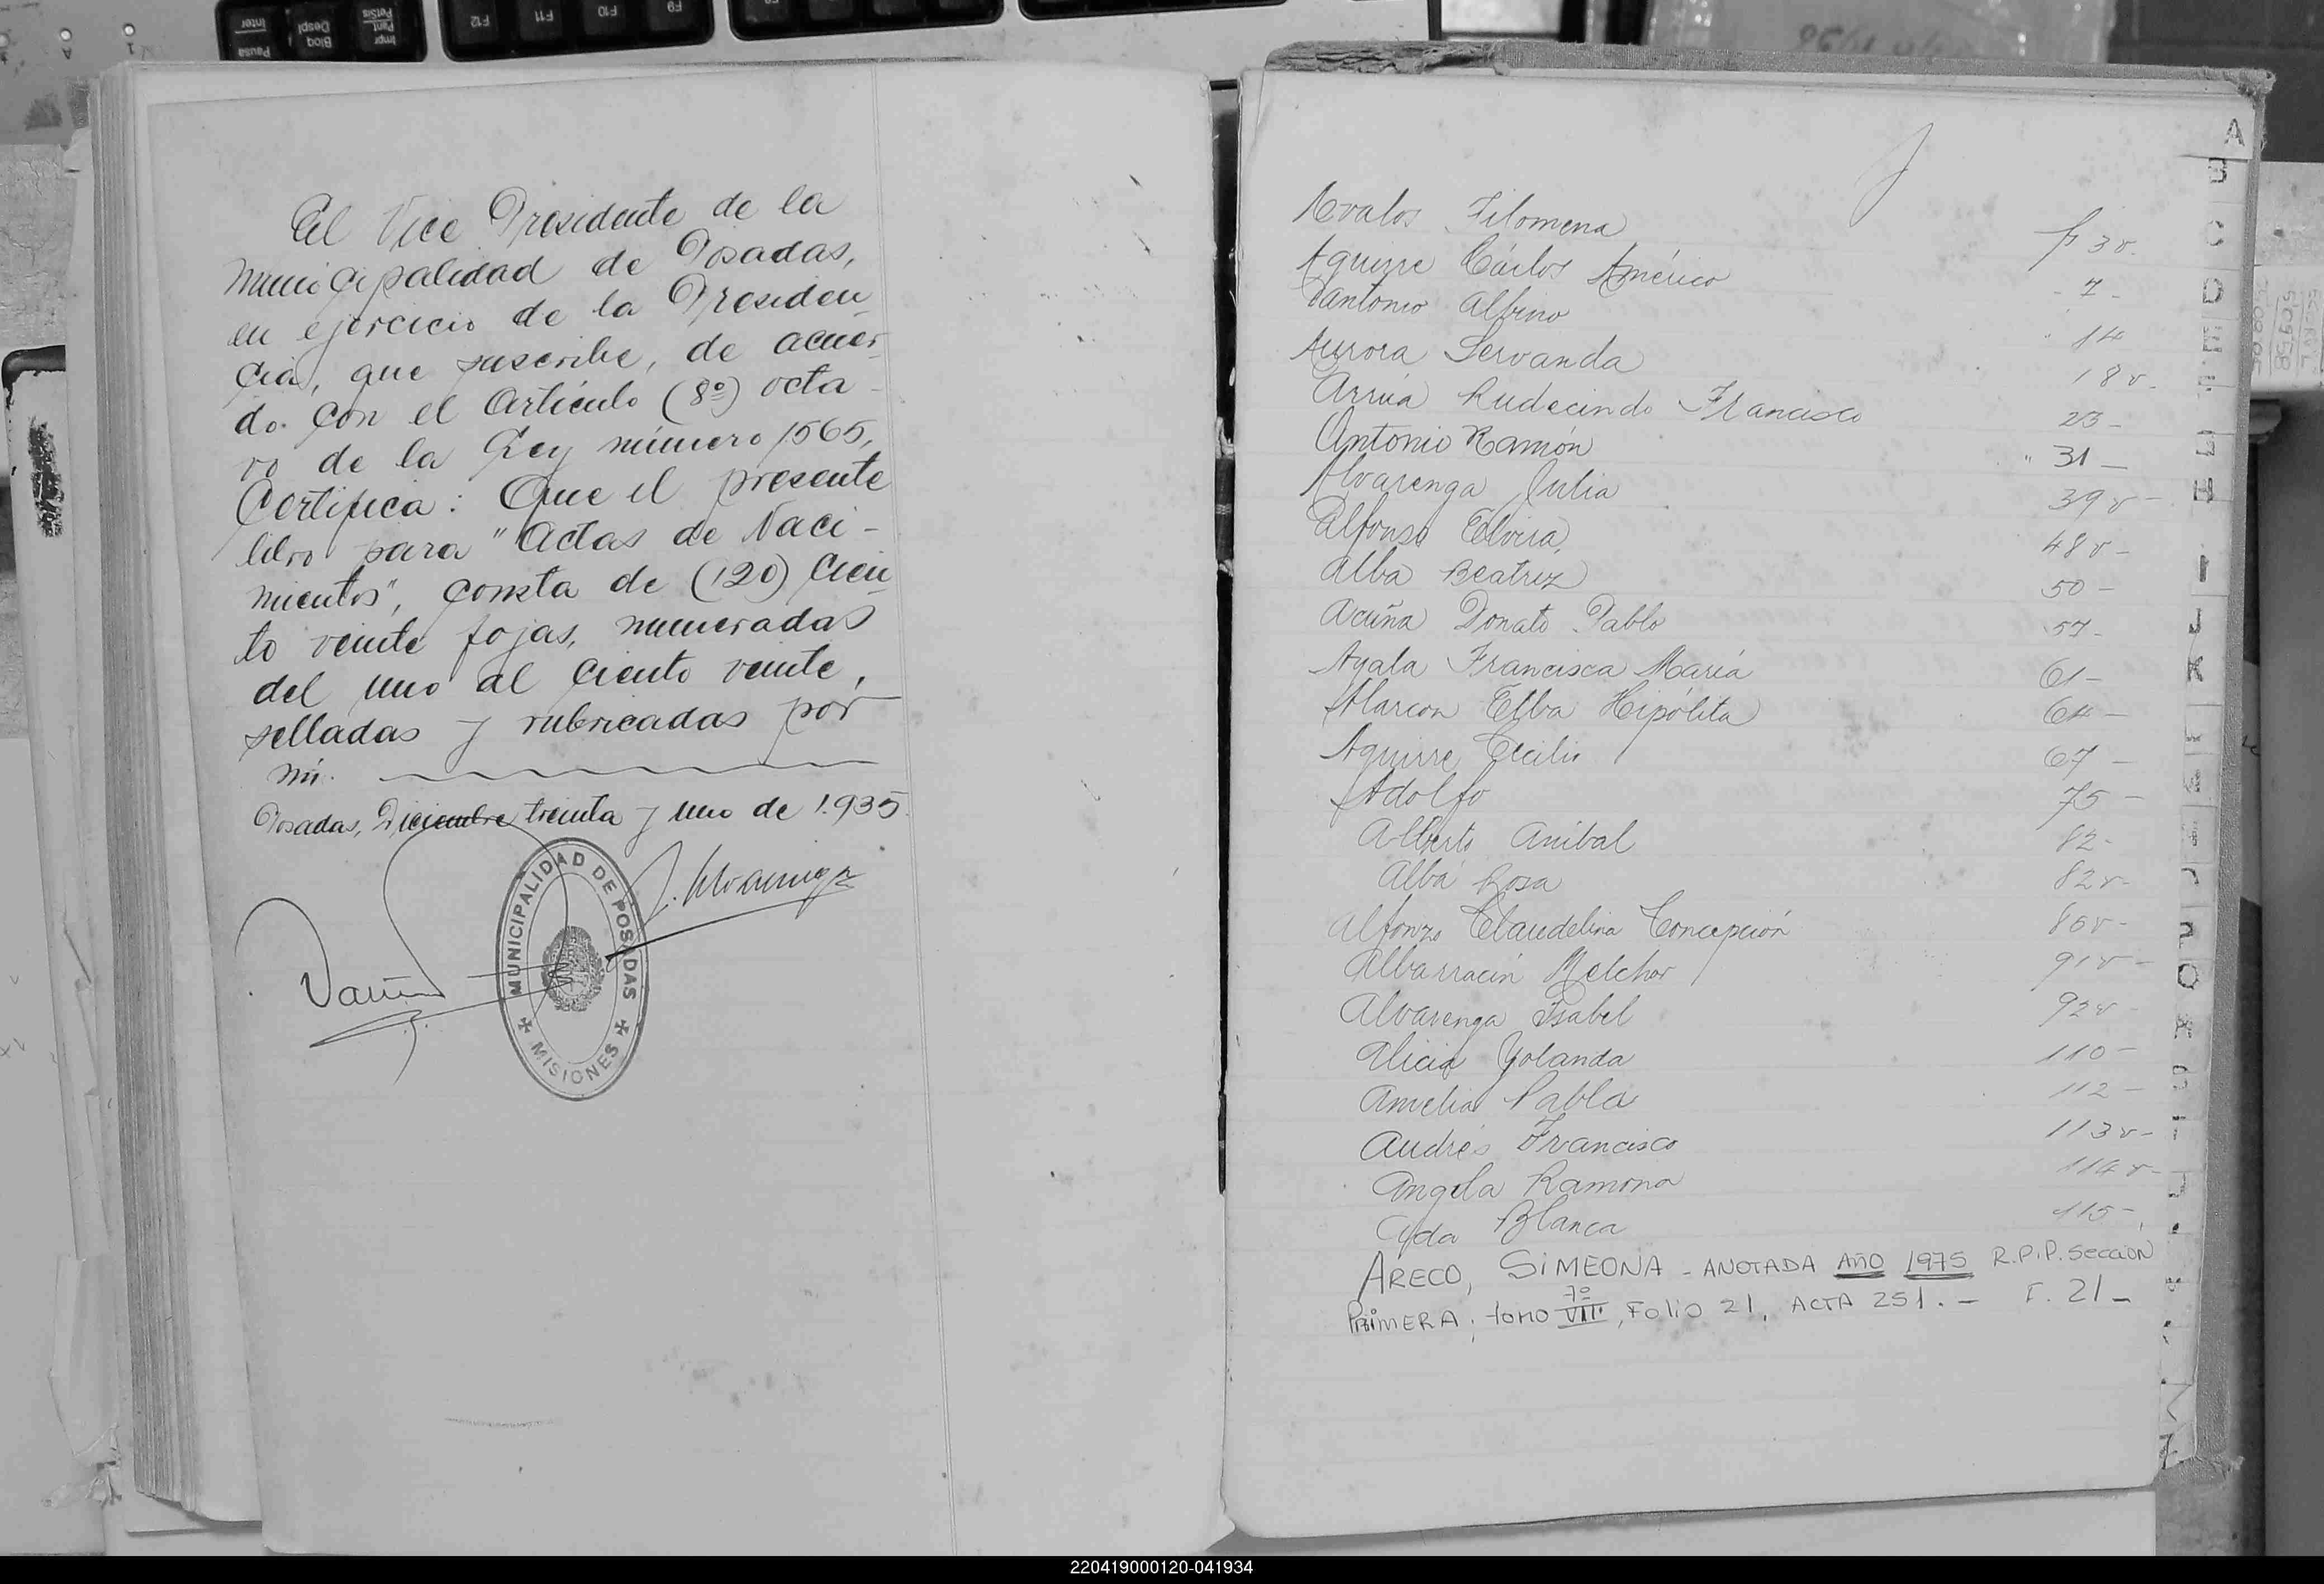 El Vice Presidente de la
Municipalidad de Posadas,
en ejercicio de la Presiden
cia, que suscribe, de acuer
do con el Artículo (8º) octa
vo de la Ley número 1565,
Certifica: Que el presente
libro para "Actas de Naci-
mientos", consta de (120) cien
to veinte fojas, numeradas
del uno al ciento veinte,
selladas y rubricadas por
mí.
Posadas, Diciembre treinta y uno de 1.935
MUNICIPALIDAD DE POSADAS
MISIONES
A
Avalos Filomena f 3 v.
Aguirre Cárlos Américo 7 -
Dantonio Albino 14
Aurora Servanda 18 v.
Arrúa Rudecindo Francisco 23 -
Antonio Ramón " 31 -
Alvarenga Julia 39 v -
Alfonso Elvira 48 v -
Alba Beatriz 50 -
Acuña Donato Pablo 57 -
Ayala Francisca María 61 -
Alarcon Elba Hipólita 64 -
Aguirre Cecilio 67 -
Adolfo 75 -
Alberto Anibal 82 -
Alba Rosa 82 v -
Alfonzo Claudelina Concepción
Albarracin Melchor 91 v -
Alvarenga Isabel 92 v -
Alicia Yolanda 110 -
Amelia Pabla 112 -
Andrés Francisco 113 v -
Angela Ramona 114 v -
Ayda Blanca 115 -
ARECO, SIMEONA - ANOTADA AÑO 1975 R.P.P. SECCIÓN
7º
PRIMERA, TOMO VIII, FOLIO 21, ACTA 251. - F. 21 -
220419000120-041934